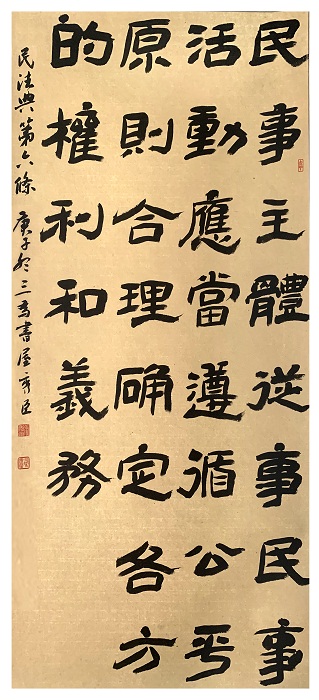 民事主體從事民事
活動應當遵循公平
原則合理确定各方
的權利和義務
民法典第六條 庚子冬三馬書屋彥臣